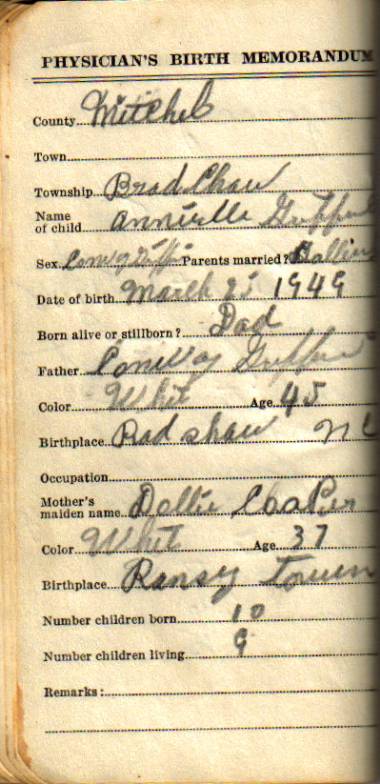 PHYSICIAN'S BIRTH MEMORANDUM
County Mitchel
Town
Township Brad Chaw
Name of child Anniella
Sex Parents married?
Date of birth March 25 1949
Born alive or stillborn? Dad
Father
Color Whit Age 45
Birthplace Rad shaw NC
Occupation
Mother's maiden name Dollie
Color Whit Age 37
Birthplace Ransy Town
Number children born 10
Number children living 9
Remarks: